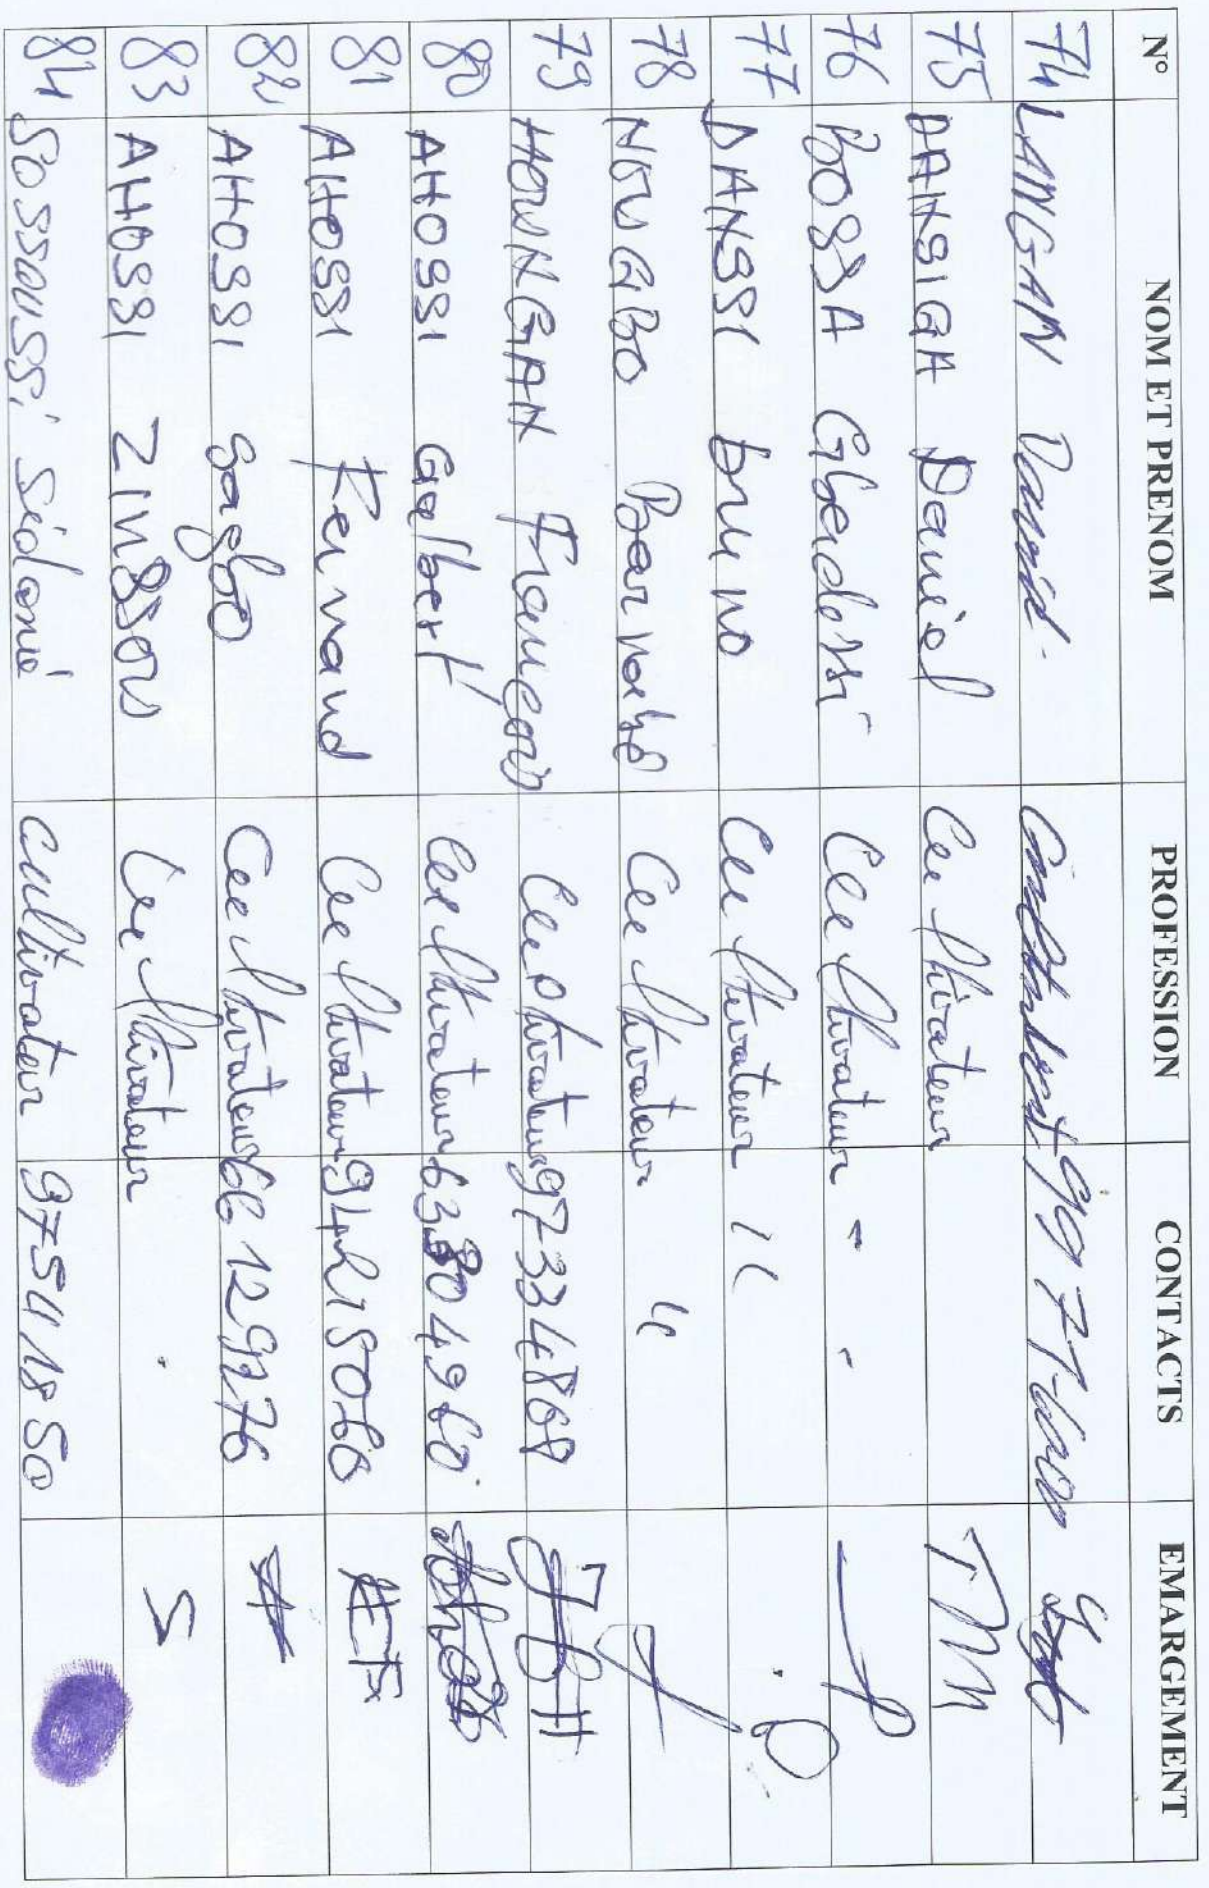 N° NOM ET PRENOM PROFESSION CONTACTS EMARGEMENT
74 LANGAN David
75 DANSIGA Daniel Cultivateur
76 BOSSA Gbedessi Cultivateur
77 DANSSI bruno Cultivateur 11
78 NOUGBO Barnabé Cultivateur "
79 HOUNGAN François Cultivateur 97334868
80 AHOSSI Galbert Cultivateur 63804960
81 AHOSSI Fernand Cultivateur 94215066
82 AHOSSI Sagbo Cultivateur 66129276
83 AHOSSI ZINSSOU Cultivateur
84 Sossoussi Sédonié Cultivateur 97541850